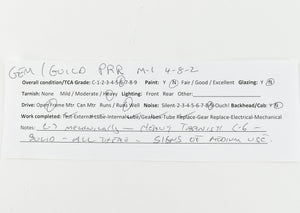 GEM / GUILD PRR M-1 4-8-2
Overall condition/TCA Grade: C-1-2-3-4-5-6-7-8-9 Paint: Y N Fair / Good / Excellent Glazing: Y N
Tarnish: None Mild / Moderate / Heavy Lighting: Front Rear Other:
Drive: Open Frame Mtr Can Mtr Runs / Runs Well Noise: Silent-2-3-4-5-6-7-8-9-Ouch! Backhead/Cab: Y N
Work completed: Test External-Lube Internal-Lube/Gearbox-Tube Replace-Gear Replace-Electrical-Mechanical
Notes: C-7 MECHANICALLY - HEAVY TARNISH C-6 -
SOLID - ALL THERE - SIGNS OF MEDIUM USE.